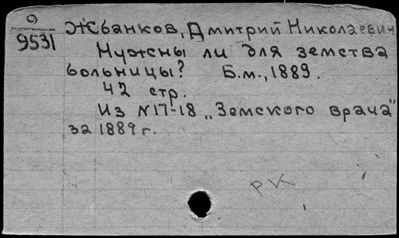 9
9531
Жбанков, Дмитрий Николаевич
Нужны ли для земства
больницы? Б.м., 1889.
42 стр.
Из N17-18 „Земского врача"
за 1889 г.
РК